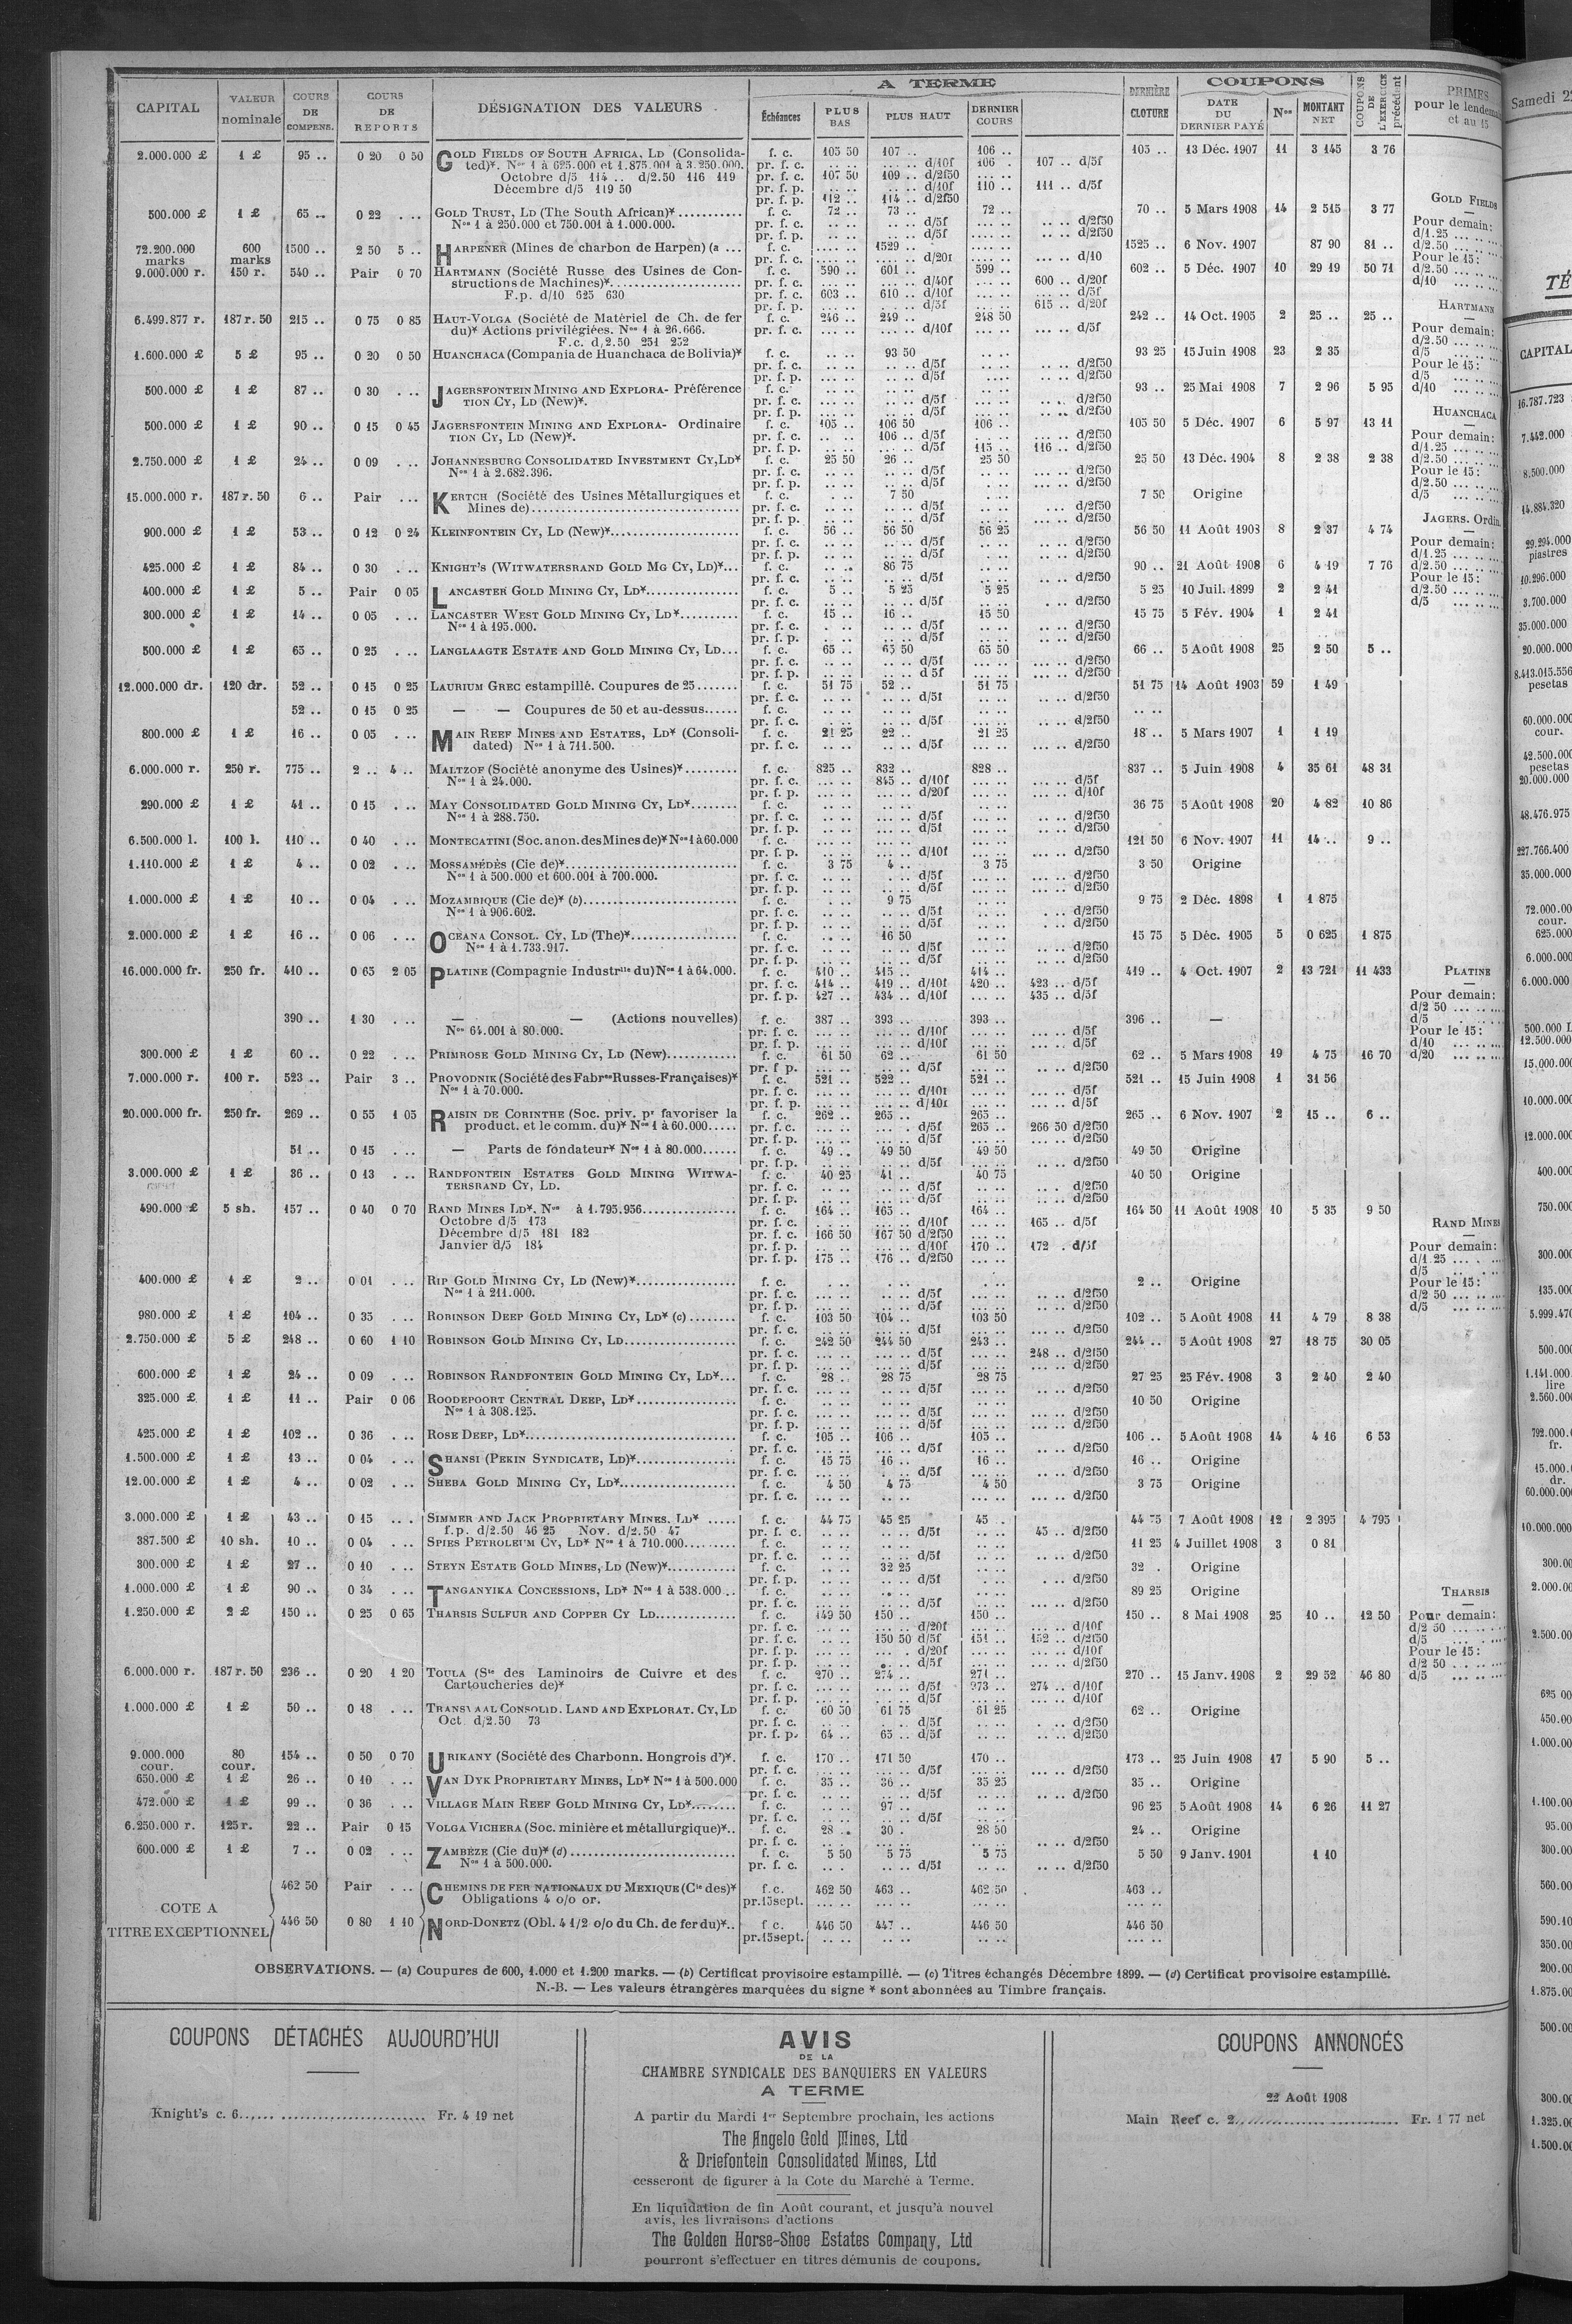 CAPITAL VALEUR nominale COURS DE COMPENS. COURS DE REPORTS DÉSIGNATION DES VALEURS A TERME Échéances PLUS BAS PLUS HAUT DERNIER COURS DERNIÈRE CLOTURE COUPONS DATE DU DERNIER PAYÉ Nos MONTANT NET COUPONS DE L'EXERCICE précédent PRIMES pour le lendemain et au 15
2.000.000 £ 1 £ 95 .. 0 20 0 50 GOLD FIELDS OF SOUTH AFRICA, LD (Consolida- f. c. 105 50 107 .. 106 .. 105 .. 13 Déc. 1907 11 3 145 3 76
ted)*. Nos 1 à 625.000 et 1.875.001 à 3.250.000. pr. f. c. .. .. .. .. d/10f 106 . 107 .. d/5f
Octobre d/5 114 .. d/2.50 116 119 pr. f. c. 107 50 109 .. d/2f50 .... ..
Décembre d/5 119 50 pr. f. p. .. .. .. .. d/10f 110 .. 111 .. d/5f
pr. f. p. 112 .. 114 .. d/2f50
500.000 £ 1 £ 65 .. 0 22 . .. GOLD TRUST, LD (The South African)* f. c. 72 .. 73 .. 72 .. 70 .. 5 Mars 1908 14 2 515 3 77
Nos 1 à 250.000 et 750.001 à 1.000.000. pr. f. c. .. .. .. .. d/5f .. .. .. .. d/2f50
pr. f. p. .. .. .. .. d/5f .. .. .. .. d/2f50
72.200.000 marks 600 marks 1500 .. 2 50 5 .. HARPENER (Mines de charbon de Harpen) (a ... f. c. .... .. 1529 .. .... .. 1525 .. 6 Nov. 1907 87 90 81 ..
pr. f. c. .... .. .. .. d/20f .... .. ... .. d/10
9.000.000 r. 150 r. 540 .. Pair 0 70 HARTMANN (Société Russe des Usines de Con- f. c. 590 .. 601 .. 599 .. 602 .. 5 Déc. 1907 10 29 19 50 71
structions de Machines)* pr. f. c. ... .. ... .. d/40f ... .. 600 .. d/20f
F.p. d/10 625 630 pr. f. c. 603 .. 610 .. d/10f ... .. ... .. d/5f
pr. f. p. ... .. ... .. d/5f ... .. 615 .. d/20f
6.499.877 r. 187 r. 50 215 .. 0 75 0 85 HAUT-VOLGA (Société de Matériel de Ch. de fer f. c. 246 .. 249 .. 248 50 242 .. 14 Oct. 1905 2 25 .. 25 ..
du)* Actions privilégiées. Nos 1 à 26.666. pr. f. c. ... .. ... .. d/10f ... .. ... .. d/5f
F.c. d/2.50 251 252
1.600.000 £ 5 £ 95 .. 0 20 0 50 HUANCHACA (Compania de Huanchaca de Bolivia)* f. c. .. .. 93 50 .. .. 93 25 15 Juin 1908 23 2 35
pr. f. c. .. .. .. .. d/5f .. .. .. .. d/2f50
pr. f. p. ... .. ... .. d/5f .... .. .. d/2f50
500.000 £ 1 £ 87 .. 0 30 . .. JAGERSFONTEIN MINING AND EXPLORA- Préférence f. c. .. .. .. .. .. .. 93 .. 25 Mai 1908 7 2 96 5 95
TION CY, LD (New)*. pr. f. c. .. .. .. .. d/5f .. .. .. .. d/2f50
pr. f. p. ... .. .. .. d/5f ... .. .. .. d/2f50
500.000 £ 1 £ 90 .. 0 15 0 45 JAGERSFONTEIN MINING AND EXPLORA- Ordinaire f. c. 105 .. 106 50 106 .. 105 50 5 Déc. 1907 6 5 97 13 11
TION CY, LD (New)*. pr. f. c. .. .. 106 .. d/5f .. .. ... .. d/2f50
pr. f. p. ... .. ... .. d/5f 115 .. 116 .. d/2f50
2.750.000 £ 1 £ 24 .. 0 09 . .. JOHANNESBURG CONSOLIDATED INVESTMENT CY, LD* f. c. 25 50 26 .. 25 50 25 50 13 Déc. 1904 8 2 38 2 38
Nos 1 à 2.682.396. pr. f. c. .. .. .. .. d/5f .. .. ... .. d/2f50
pr. f. p. .. .. .. .. d/5f .. .. ... .. d/2f50
15.000.000 r. 187 r. 50 6 .. Pair ... KERTCH (Société des Usines Métallurgiques et f. c. . .. 7 50 . .. 7 50 Origine
Mines de) pr. f. c. .. .. .. .. d/5f .. .. .. .. d/2f50
pr. f. p. .. .. .. .. d/5f .. .. .. .. d/2f50
900.000 £ 1 £ 53 .. 0 12 0 24 KLEINFONTEIN CY, LD (New)* f. c. 56 .. 56 50 56 25 56 50 11 Août 1908 8 2 37 4 74
pr. f. c. .. .. .. .. d/5f .. .. .. .. d/2f50
pr. f. p. .. .. .. .. d/5f .. .. .. .. d/2f50
425.000 £ 1 £ 84 .. 0 30 . .. KNIGHT'S (WITWATERSRAND GOLD MG CY, LD)*... f. c. .. .. 86 75 .. .. 90 .. 21 Août 1908 6 4 19 7 76
pr. f. c. .. .. .. .. d/5f .. .. .. .. d/2f50
400.000 £ 1 £ 5 .. Pair 0 05 LANCASTER GOLD MINING CY, LD* f. c. 5 .. 5 25 5 25 5 25 10 Juil. 1899 2 2 41
pr. f. c. .. .. .. .. d/5f .. .. . .. d/2f50
300.000 £ 1 £ 14 .. 0 05 . .. LANCASTER WEST GOLD MINING CY, LD* f. c. 15 .. 16 .. 15 50 15 75 5 Fév. 1904 1 2 41
Nos 1 à 195.000. pr. f. c. .. .. .. .. d/5f .. .. .. .. d/2f50
pr. f. p. .. .. .. .. d/5f .. .. .. .. d/2f50
500.000 £ 1 £ 65 .. 0 25 . .. LANGLAAGTE ESTATE AND GOLD MINING CY, LD... f. c. 65 .. 65 50 65 50 66 .. 5 Août 1908 25 2 50 5 ..
pr. f. c. .. .. .. .. d/5f .. .. ... .. d/2f50
pr. f. p. .. .. .. .. d 5f .. .. ... .. d/2f50
12.000.000 dr. 120 dr. 52 .. 0 15 0 25 LAURIUM GREC estampillé. Coupures de 25 f. c. 51 75 52 .. 51 75 51 75 14 Août 1903 59 1 49
pr. f. c. .. .. .. .. d/5f .. .. .. .. d/2f50
52 .. 0 15 0 25 — — Coupures de 50 et au-dessus f. c. .. .. .. .. .. .. .. ..
pr. f. c. .. .. .. .. d/5f .. .. .. .. d/2f50
800.000 £ 1 £ 16 .. 0 05 . .. MAIN REEF MINES AND ESTATES, LD* (Consoli- f. c. 21 25 22 .. 21 25 18 .. 5 Mars 1907 1 1 19
dated) Nos 1 à 711.500. pr. f. c. .. .. .. .. d/5f .. .. ... .. d/2f50
6.000.000 r. 250 r. 775 .. 2 .. 4 .. MALTZOF (Société anonyme des Usines)* f. c. 825 .. 832 .. 828 .. 837 .. 5 Juin 1908 4 35 61 48 31
Nos 1 à 24.000. pr. f. c. ... .. 845 .. d/10f ... .. ... .. d/5f
pr. f. p. ... .. ... .. d/20f ... .. ... .. d/10f
290.000 £ 1 £ 41 .. 0 15 . .. MAY CONSOLIDATED GOLD MINING CY, LD* f. c. .. .. .. .. .. .. 36 75 5 Août 1908 20 4 82 10 86
Nos 1 à 288.750. pr. f. c. .. .. .. .. d/5f .. .. ... .. d/2f50
pr. f. p. .. .. .. .. d/5f .. .. ... .. d/2f50
6.500.000 l. 100 l. 110 .. 0 40 . .. MONTECATINI (Soc. anon. des Mines de)* Nos 1 à 60.000 f. c. ... .. ... .. ... .. 121 50 6 Nov. 1907 11 14 .. 9 ..
pr. f. p. ... .. ... .. d/10f ... .. ... .. d/2f50
1.110.000 £ 1 £ 4 .. 0 02 . .. MOSSAMÉDÈS (Cie de)* f. c. 3 75 4 .. 3 75 3 50 Origine
Nos 1 à 500.000 et 600.001 à 700.000. pr. f. c. .. .. . .. d/5f .. .. ... .. d/2f50
pr. f. p. .. .. .. .. d/5f .. .. ... .. d/2f50
1.000.000 £ 1 £ 10 .. 0 04 . .. MOZAMBIQUE (Cie de)* (b) f. c. . .. 9 75 .. .. 9 75 2 Déc. 1898 1 1 875
Nos 1 à 906.602. pr. f. c. .. .. .. .. d/5f .. .. . .. d/2f50
pr. f. p. .. .. .. .. d/5f .. .. . .. d/2f50
2.000.000 £ 1 £ 16 .. 0 06 . .. OCEANA CONSOL. CY, LD (The)* f. c. . .. 16 50 .. .. 15 75 5 Déc. 1905 5 0 625 1 875
Nos 1 à 1.733.917. pr. f. c. .. .. .. .. d/5f .. .. .. .. d/2f50
pr. f. p. .. .. .. .. d/5f .. .. .. .. d/2f50
16.000.000 fr. 250 fr. 410 .. 0 65 2 05 PLATINE (Compagnie Industrlle du) Nos 1 à 64.000. f. c. 410 .. 415 .. 414 .. 419 .. 4 Oct. 1907 2 13 721 11 433
pr. f. c. 414 .. 419 .. d/10f 420 .. 423 .. d/5f
pr. f. p. 427 .. 434 .. d/10f ... .. 435 .. d/5f
390 .. 1 30 . .. — — (Actions nouvelles) f. c. 387 .. 393 .. 393 .. 396 .. —
Nos 64.001 à 80.000. pr. f. c. ... .. ... .. d/10f ... .. ... .. d/5f
pr. f. p. ... .. ... .. d/10f ... .. ... .. d/5f
300.000 £ 1 £ 60 .. 0 22 . .. PRIMROSE GOLD MINING CY, LD (New) f. c. 61 50 62 .. 61 50 62 .. 5 Mars 1908 19 4 75 16 70
pr. f. p. .. .. .. .. d/5f .. .. ... .. d/2f50
7.000.000 r. 100 r. 523 .. Pair 3 .. PROVODNIK (Société des Fabres Russes-Françaises)* f. c. 521 .. 522 .. 521 .. 521 .. 15 Juin 1908 1 31 56
Nos 1 à 70.000. pr. f. c. ... .. ... .. d/10f ... .. ... .. d/5f
pr. f. p. ... .. ... .. d/10f ... .. ... .. d/5f
20.000.000 fr. 250 fr. 269 .. 0 55 1 05 RAISIN DE CORINTHE (Soc. priv. pr favoriser la f. c. 262 .. 265 .. 265 .. 265 .. 6 Nov. 1907 2 15 .. 6 ..
product. et le comm. du)* Nos 1 à 60.000..... pr. f. c. ... .. ... . d/5f 265 .. 266 50 d/2f50
pr. f. p. ... .. ... .. d/5f ... .. ... .. d/2f50
51 .. 0 15 . .. — Parts de fondateur* Nos 1 à 80.000...... f. c. 49 .. 49 50 49 50 49 50 Origine
pr. f. p. .. .. .. .. d/5f .. .. .. .. d/2f50
3.000.000 £ 1 £ 36 .. 0 13 . .. RANDFONTEIN ESTATES GOLD MINING WITWA- f. c. 40 25 41 .. 40 75 40 50 Origine
TERSRAND CY, LD. pr. f. c. .. .. .. .. d/5f .. .. .. . d/2f50
pr. f. p. .. .. .. .. d/5f .. .. .. .. d/2f50
490.000 £ 5 sh. 157 .. 0 40 0 70 RAND MINES LD*. Nos à 1.795.956 f. c. 164 .. 165 .. 164 .. 164 50 11 Août 1908 10 5 35 9 50
Octobre d/5 173 pr. f. c. . .. ... .. d/10f ... .. 165 .. d/5f
Décembre d/5 181 182 pr. f. c. 166 50 167 50 d/2f50 ... ..
Janvier d/5 184 pr. f. p. ... .. ... .. d/10f 170 .. 172 . d/5f
pr. f. p. 175 .. 176 .. d/2f50 ... ..
400.000 £ 1 £ 2 .. 0 01 . .. RIP GOLD MINING CY, LD (New)* f. c. . .. . .. . .. 2 .. Origine
Nos 1 à 211.000. pr. f. c. .. .. .. .. d/5f .. .. .. .. d/2f50
pr. f. p. .. .. .. .. d/5f .. .. .. .. d/2f50
980.000 £ 1 £ 104 .. 0 35 . .. ROBINSON DEEP GOLD MINING CY, LD* (c) f. c. 103 50 104 .. 103 50 102 .. 5 Août 1908 11 4 79 8 38
pr. f. c. .. .. .. .. d/5f ... .. ... .. d/2f50
2.750.000 £ 5 £ 248 .. 0 60 1 10 ROBINSON GOLD MINING CY, LD f. c. 242 50 244 50 243 .. 244 .. 5 Août 1908 27 18 75 30 05
pr. f. c. ... .. ... .. d/5f ... .. 248 .. d/2f50
pr. f. p. ... .. ... .. d/5f ... .. ... .. d/2f50
600.000 £ 1 £ 24 .. 0 09 . .. ROBINSON RANDFONTEIN GOLD MINING CY, LD*... f. c. 28 .. 28 75 28 75 27 25 25 Fév. 1908 3 2 40 2 40
pr. f. c. .. .. .. .. d/5f .. .. ... .. d/2f50
325.000 £ 1 £ 11 .. Pair 0 06 ROODEPOORT CENTRAL DEEP, LD* f. c. ... .. ... .. ... .. 10 50 Origine
Nos 1 à 308.125. pr. f. c. ... .. ... .. d/5f ... .. ... .. d/2f50
pr. f. p. ... .. ... .. d/5f ... .. ... .. d/2f50
425.000 £ 1 £ 102 .. 0 36 . .. ROSE DEEP, LD* f. c. 105 .. 106 .. 105 .. 106 .. 5 Août 1908 14 4 16 6 53
pr. f. c. ... .. ... .. d/5f ... .. ... .. d/2f50
1.500.000 £ 1 £ 13 .. 0 04 . .. SHANSI (PEKIN SYNDICATE, LD)* f. c. 15 75 16 .. 16 .. 16 .. Origine
pr. f. c. ... .. . .. d/5f ... .. ... .. d/2f50
12.00.000 £ 1 £ 4 .. 0 02 . .. SHEBA GOLD MINING CY, LD* f. c. 4 50 4 75 4 50 3 75 Origine
pr. f. c. ... .. .. .. ... .. ... .. d/2f50
3.000.000 £ 1 £ 43 .. 0 15 . .. SIMMER AND JACK PROPRIETARY MINES, LD* f. c. 44 75 45 25 45 . 44 75 7 Août 1908 12 2 395 4 795
f.p. d/2.50 46 25 Nov. d/2.50 47 pr. f. c. .. .. .. .. d/5f .. .. 45 .. d/2f50
387.500 £ 10 sh. 10 .. 0 04 . .. SPIES PETROLEUM CY, LD* Nos 1 à 710.000 f. c. .. .. .. .. .. .. 11 25 4 Juillet 1908 3 0 81
pr. f. c. .. .. .. .. d/5f .. .. .. .. d/2f50
300.000 £ 1 £ 27 .. 0 10 . .. STEYN ESTATE GOLD MINES, LD (New)* f. c. .. .. 32 25 .. .. 32 . Origine
pr. f. p. .. .. .. .. d/5f .. .. . .. d/2f50
1.000.000 £ 1 £ 90 .. 0 34 . .. TANGANYIKA CONCESSIONS, LD* Nos 1 à 538.000 .. f. c. .. .. .. .. .. .. 89 25 Origine
pr. f. c. .. .. .. .. d/5f .. .. .. .. d/2f50
1.250.000 £ 2 £ 150 .. 0 25 0 65 THARSIS SULFUR AND COPPER CY LD f. c. 149 50 150 .. 150 .. 150 .. 8 Mai 1908 25 10 .. 12 50
pr. f. c. ... .. ... .. d/20f ... .. ... .. d/10f
pr. f. c. ... .. 150 50 d/5f 151 .. 152 .. d/2f50
pr. f. p. ... .. ... . d/20f ... .. ... .. d/10f
pr. f. p. .. .. .. .. d/5f ... .. ... .. d/2f50
6.000.000 r. 187 r. 50 236 .. 0 20 1 20 TOULA (Sté des Laminoirs de Cuivre et des f. c. 270 .. 274 .. 271 .. 270 .. 15 Janv. 1908 2 29 52 46 80
Cartoucheries de)* pr. f. c. ... .. ... .. d/5f 273 .. 274 .. d/10f
pr. f. p. ... .. ... .. d/5f ... .. ... .. d/10f
1.000.000 £ 1 £ 50 .. 0 18 . .. TRANSVAAL CONSOLID. LAND AND EXPLORAT. CY, LD f. c. 60 50 61 75 61 25 62 .. Origine
Oct. d/2.50 73 pr. f. c. .. .. .. .. d/5f .. .. . .. d/2f50
pr. f. p. 64 .. 65 .. d/5f .. .. .. .. d/2f50
9.000.000 cour. 80 cour. 154 .. 0 50 0 70 URIKANY (Société des Charbonn. Hongrois d')*. f. c. 170 .. 171 50 170 .. 173 .. 25 Juin 1908 17 5 90 5 ..
pr. f. c. ... .. ... .. d/5f ... .. ... .. d/2f50
650.000 £ 1 £ 26 .. 0 10 . .. VAN DYK PROPRIETARY MINES, LD* Nos 1 à 500.000 f. c. 35 .. 36 .. 35 25 35 .. Origine
pr. f. c. .. .. .. .. d/5f .. .. .. .. d/2f50
472.000 £ 1 £ 99 .. 0 36 . .. VILLAGE MAIN REEF GOLD MINING CY, LD* f. c. .. .. 97 .. .. .. 96 25 5 Août 1908 14 6 26 11 27
pr. f. c. .. .. .. .. d/5f
6.250.000 r. 125 r. 22 .. Pair 0 15 VOLGA VICHERA (Soc. minière et métallurgique)*.. f. c. 28 .. 30 . 28 50 24 .. Origine
pr. f. c. ... .. ... .. ... .. .. .. d/2f50
600.000 £ 1 £ 7 .. 0 02 . .. ZAMBÈZE (Cie du)* (d) f. c. 5 50 5 75 5 75 5 50 9 Janv. 1901 1 10
Nos 1 à 500.000. pr. f. c. .. . .. .. d/5f .. .. .. .. d/2f50
COTE A
TITRE EXCEPTIONNEL
462 50 Pair . .. CHEMINS DE FER NATIONAUX DU MEXIQUE (Cie des)* f. c. 462 50 463 .. 462 50 463 ..
Obligations 4 o/o or. pr. 15 sept. ... .. ... .. ... .. ... ..
446 50 0 80 1 10 NORD-DONETZ (Obl. 4 1/2 o/o du Ch. de fer du)*.. f c. 446 50 447 .. 446 50 446 50
pr. 15 sept. .. .. .. .. .. .. ... ..
GOLD FIELDS
Pour demain:
d/1.25 ... .. ...
d/2.50 ... .. ...
Pour le 15:
d/2.50 ... .. ...
d/10 ... .. ...
HARTMANN
Pour demain:
d/2.50 ... .. ...
d/5 ... .. ...
Pour le 15:
d/5 ... .. ...
d/10 ... .. ...
HUANCHACA
Pour demain:
d/1.25 ... .. ...
d/2.50 ... .. ...
Pour le 15:
d/2.50 ... .. ...
d/5 ... .. ...
JAGERS. Ordin.
Pour demain:
d/1.25 ... .. ...
d/2.50 ... .. ...
Pour le 15:
d/2.50 ... .. ...
d/5 ... .. ...
PLATINE
Pour demain:
d/2 50 ... .. ...
d/5 ... .. ...
Pour le 15:
d/10 ... .. ...
d/20 ... .. ...
RAND MINES
Pour demain:
d/1.25 ... . ...
d/5 ... .. ...
Pour le 15:
d/2 50 ... .. ...
d/5 ... .. ...
THARSIS
Pour demain:
d/2 50 ... .. ...
d/5 ... . ...
Pour le 15:
d/2 50 . .. ...
d/5 ... .. ...
OBSERVATIONS. — (a) Coupures de 600, 1.000 et 1.200 marks. — (b) Certificat provisoire estampillé. — (c) Titres échangés Décembre 1899. — (d) Certificat provisoire estampillé.
N.-B. — Les valeurs étrangères marquées du signe * sont abonnées au Timbre français.
COUPONS DÉTACHÉS AUJOURD'HUI
Knight's c. 6 Fr. 4 19 net
AVIS
DE LA
CHAMBRE SYNDICALE DES BANQUIERS EN VALEURS
A TERME
A partir du Mardi 1er Septembre prochain, les actions
The Angelo Gold Mines, Ltd
& Driefontein Consolidated Mines, Ltd
cesseront de figurer à la Cote du Marché à Terme.
En liquidation de fin Août courant, et jusqu'à nouvel
avis, les livraisons d'actions
The Golden Horse-Shoe Estates Company, Ltd
pourront s'effectuer en titres démunis de coupons.
COUPONS ANNONCÉS
22 Août 1908
Main Reef c. 2 Fr. 1 77 net
Samedi 22
TÉ
CAPITAL
16.787.723
7.442.000
8.500.000
14.884.320
29.294.000
piastres
10.296.000
3.700.000
35.000.000
20.000.000
8.413.015.556
pesetas
60.000.000
cour.
42.500.000
pesetas
20.000.000
48.476.975
227.766.400
35.000.000
72.000.00
cour.
625.000
6.000.000
6.000.000
500.000 L
12.500.000
15.000.00
10.000.000
12.000.000
400.000
750.000
300.000
135.000
5.999.470
500.000
1.141.000
lire
2.560.000
792.000.0
fr.
15.000.0
dr.
60.000.00
10.000.000
300.00
2.000.00
2.500.00
625 00
450.00
1.000.00
1.100.00
95.00
300.00
560.00
590.10
350.00
200.00
1.875.00
500.00
300.00
1.325.00
1.500.00